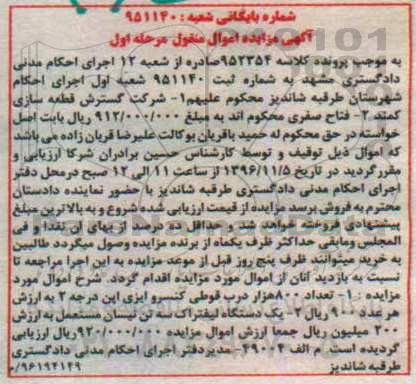 شماره بایگانی شعبه : ۹۵۱۱۴۰
آگهی مزایده اموال منقول مرحله اول
به موجب پرونده کلاسه ۹۵۲۳۵۴ صادره از شعبه ۱۲ اجرای احکام مدنی
دادگستری مشهد به شماره ثبت ۹۵۱۱۴۰ شعبه اول اجرای احکام
شهرستان طرقبه شاندیز محکوم علیهم ۱- شرکت گسترش قطعه سازی
کمند ۲- فتاح صفری محکوم اند به مبلغ ۹۱۲/۰۰۰/۰۰۰ ریال بابت اصل
خواسته در حق محکوم له حمید باقریان بوکالت علیرضا قربان زاده می باشد
که اموال ذیل توقیف و توسط کارشناس حسین برادران شرکا ارزیابی و
مقرر گردید در تاریخ ۱۳۹۶/۱۱/۵ از ساعت ۱۱ الی ۱۲ صبح در محل دفتر
اجرای احکام مدنی دادگستری طرقبه شاندیز با حضور نماینده دادستان
محترم به فروش برسد مزایده از قیمت ارزیابی شده شروع و به بالاترین مبلغ
پیشنهادی فروخته خواهد شد و حداقل ده درصد از بهای آن نقدا و فی
المجلس ومابقی حداکثر ظرف یکماه از برنده مزایده وصول میگردد طالبین
به خرید میتوانند ظرف پنج روز قبل از موعد مزایده به این اجرا مراجعه تا
نسبت به بازدید آنان از اموال مورد مزایده اقدام گردد. شرح اموال مورد
مزایده : ۱- تعداد ۸۰۰هزار درب قوطی کنسرو ایزی اپن درجه ۲ به ارزش
هر عدد ۹۰۰ ریال ۲- یک دستگاه لیفتراک سه تن نیسان مستعمل به ارزش
۲۰۰ میلیون ریال جمعا ارزش اموال مزایده ۹۲۰/۰۰۰/۰۰۰ ریال ارزیابی
گردیده است. م الف ۴۹۰۴- مدیر دفتر اجرای احکام مدنی دادگستری
طرقبه شاندیز ۹۶۱۹۴۱۴۹/م